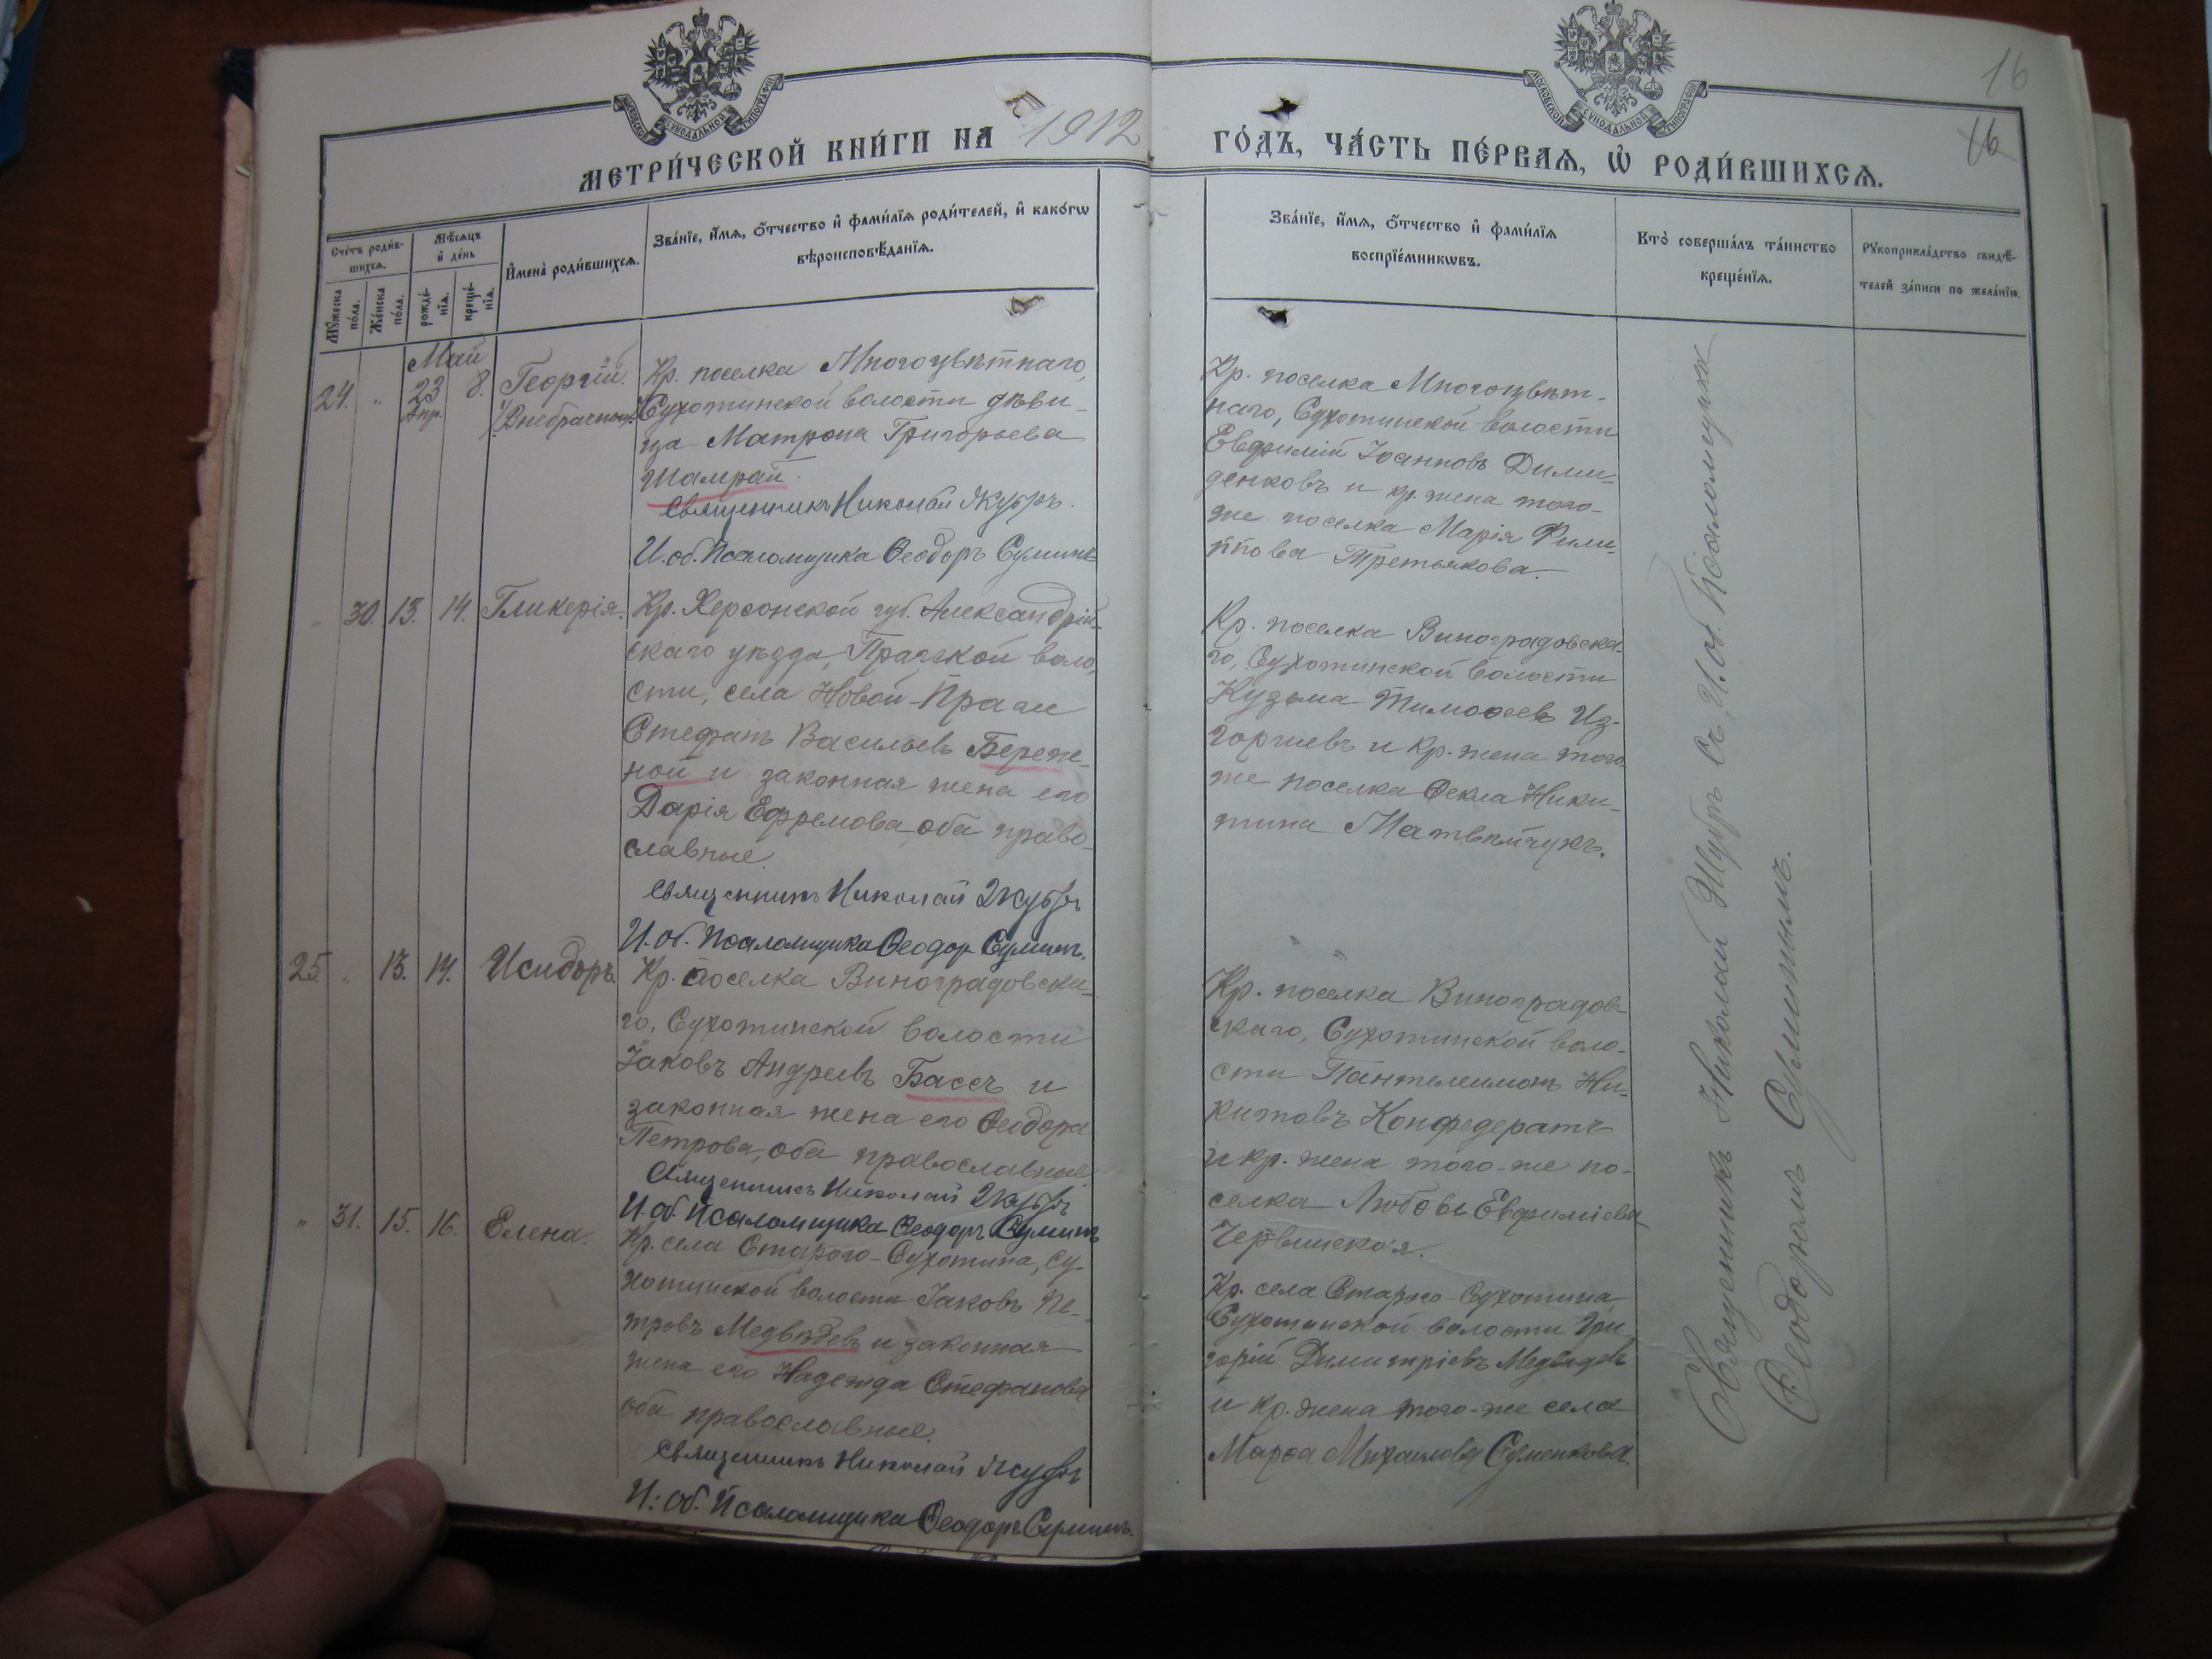 МОСКОВСКОЙ СѴНОДАЛЬНОЙ ТИПОГРАФІИ
МОСКОВСКОЙ СѴНОДАЛЬНОЙ ТИПОГРАФІИ
16
16
МЕТРИ́ЧЕСКОЙ КНИ́ГИ НА 1912 ГО́ДЪ, ЧА́СТЬ ПЕ́РВАѦ, Ѡ РОДИ́ВШИХСѦ.
Сче́тъ роди́в-
шихсѧ.
Мꙋ́жеска по́ла.
Же́нска по́ла.
Мѣ́сѧцъ и҆ де́нь
рожде́-
нїѧ.
креще́-
нїѧ.
И҆мена̀ роди́вшихсѧ.
Зва́нїе, и҆́мѧ, ѻ҆́тчество и҆ фами́лїѧ роди́телей, и҆ како́гѡ
вѣроисповѣ́данїѧ.
Зва́нїе, и҆́мѧ, ѻ҆́тчество и҆ фами́лїѧ
воспрїе́мникѡвъ.
Кто̀ соверша́лъ та́инство
креще́нїѧ.
Рꙋкоприкла́дство свидѣ́-
телей за́писи по жела́нїю.
Май
24. „ 23 Апр. 8. Георгій.
(Внебрачный)
Кр. поселка Многоцвѣтнаго,
Сухотинской волости дѣви-
ца Матрона Григорьева
Шамрай.
Священникъ Николай Якубъ.
И. об. Псаломщика Ѳеодоръ Сулимъ
Кр. поселка Многоцвѣт-
наго, Сухотинской волости
Евфимій Іоанновъ Дими-
денковъ и кр. жена того-
же поселка Марія Фили-
ппова Третьякова.
„ 30. 13. 14. Гликерія.
Кр. Херсонской губ. Александрій-
скаго уѣзда, Пражской воло-
сти, села Новой-Праги
Стефанъ Васильевъ Береж-
ной и законная жена его
Дарія Ефремова, оба право-
славные.
Священникъ Николай Якубъ
И. об. Псаломщика Ѳеодоръ Сулимъ.
Кр. поселка Виноградовска-
го, Сухотинской волости
Кузьма Тимоѳеевъ Из-
горшевъ и кр. жена того-
же поселка Ѳекла Ники-
тина Матвѣйчукъ.
25. „ 13. 14. Исидоръ.
Кр. поселка Виноградовска-
го, Сухотинской волости
Іаковъ Андреевъ Бассъ и
законная жена его Ѳеодора
Петрова, оба православные.
Священникъ Николай Якубъ
И. об. Псаломщика Ѳеодоръ Сулимъ
Кр. поселка Виноградов-
скаго, Сухотинской воло-
сти Пантелеимонъ Ни-
китовъ Конфедератъ
и кр. жена того-же по-
селка Любовь Евфиміева
Червинская.
„ 31. 15. 16. Елена.
Кр. села Стараго-Сухотина, Су-
хотинской волости Іаковъ Пе-
тровъ Медвѣдевъ и законная
жена его Надежда Стефанова
оба православные.
Священникъ Николай Якубъ
И. об. Псаломщика Ѳеодоръ Сулимъ.
Кр. села Стараго-Сухотина,
Сухотинской волости Гри-
горій Димитріевъ Медвѣдевъ
и кр. жена того-же села
Марѳа Михаилова Сименкова.
Священникъ Николай Якубъ съ И. об. Псаломщика
Ѳеодоромъ Сулимымъ.